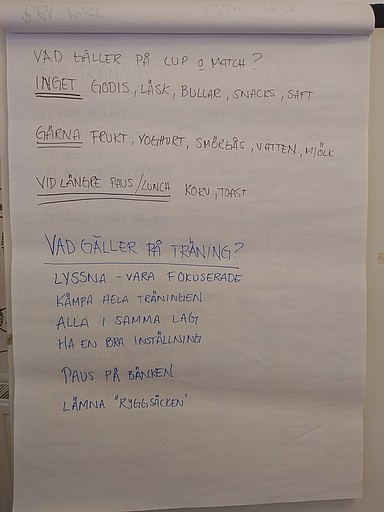 VAD GÄLLER PÅ CUP O MATCH?
INGET GODIS, LÄSK, BULLAR, SNACKS, SAFT
GÄRNA FRUKT, YOGHURT, SMÖRGÅS, VATTEN, MJÖLK
VID LÄNGRE PAUS/LUNCH KORV, TOAST
VAD GÄLLER PÅ TRÄNING?
LYSSNA - VARA FOKUSERADE
KÄMPA HELA TRÄNINGEN
ALLA I SAMMA LAG
HA EN BRA INSTÄLLNING
PAUS PÅ BÄNKEN
LÄMNA "RYGGSÄCKEN"